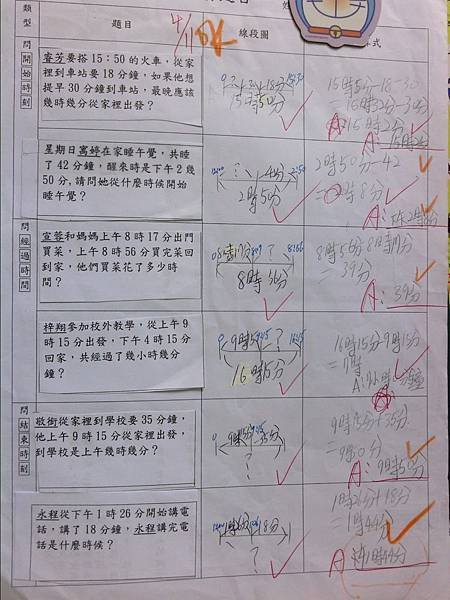 類型
題目
4/11 OK
線段圖
式
問開始時刻
睿芳要搭15：50的火車，從家
裡到車站要18分鐘，如果他想
提早30分鐘到車站，最晚應該
幾時幾分從家裡出發？
15時50分
15時50分-18-30
=15時32分-30分
A:15時2分
星期日寓婷在家睡午覺，共睡
了42分鐘，醒來時是下午2幾
50分，請問她從什麼時候開始
睡午覺？
?
42分
2時50分
2時50分-42
=2時8分
問經過時間
宣蓉和媽媽上午8時17分出門
買菜，上午8時56分買完菜回
到家，他們買菜花了多少時
間？
?
8時56分
8時56分-8時17分
=39分
A:39分
梓翔參加校外教學，從上午9
時15分出發，下午4時15分
回家，共經過了幾小時幾分
鐘？
?
16時15分
16時15分-9時15分
=7時
問結束時刻
敬銜從家裡到學校要35分鐘，
他上午9時15分從家裡出發，
到學校是上午幾時幾分？
35分
?
9時15分+35分
=9時50分
A:9時50分
永程從下午1時26分開始講電
話，講了18分鐘，永程講完電
話是什麼時候？
18分
?
1時26分+18分
=1時44分